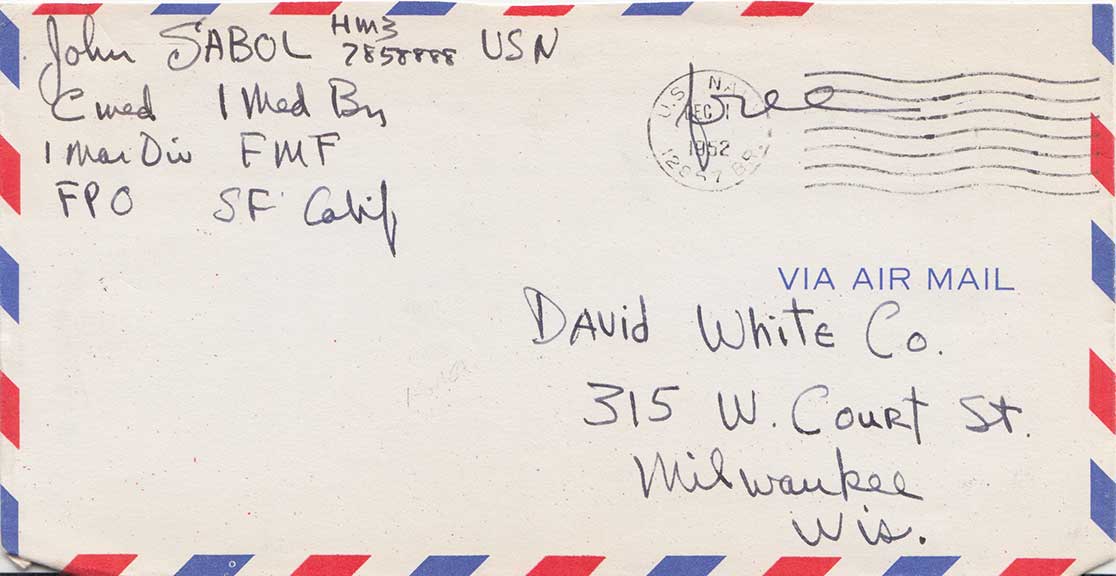 John SABOL HM3 USN
7858888
C med 1 Med Bn
1 Mar Div FMF
FPO SF Calif
free
U.S. NAVY
DEC 1
1952
12867 BR.
VIA AIR MAIL
DAViD WhiTE Co.
315 W. CourT St.
Milwaukee
Wis.